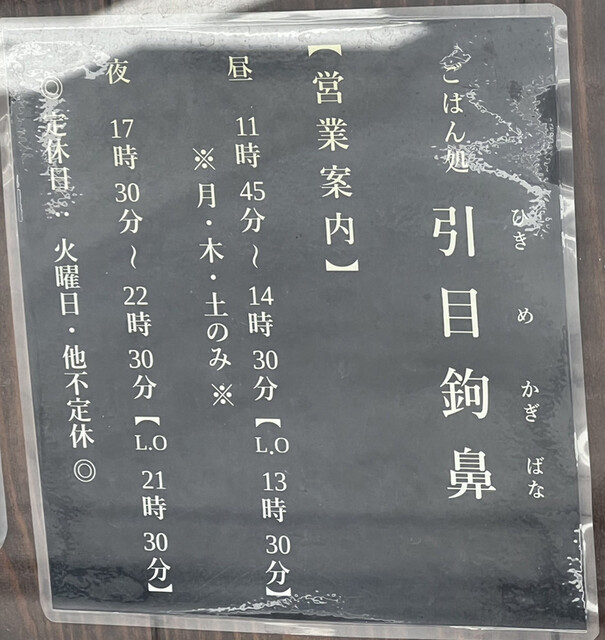 ひき め かぎ ばな
ごはん処 引目鉤鼻
【営業案内】
昼 11時45分〜14時30分【L.O 13時30分】
※月・木・土のみ※
夜 17時30分〜22時30分【L.O 21時30分】
◎定休日：火曜日・他不定休◎